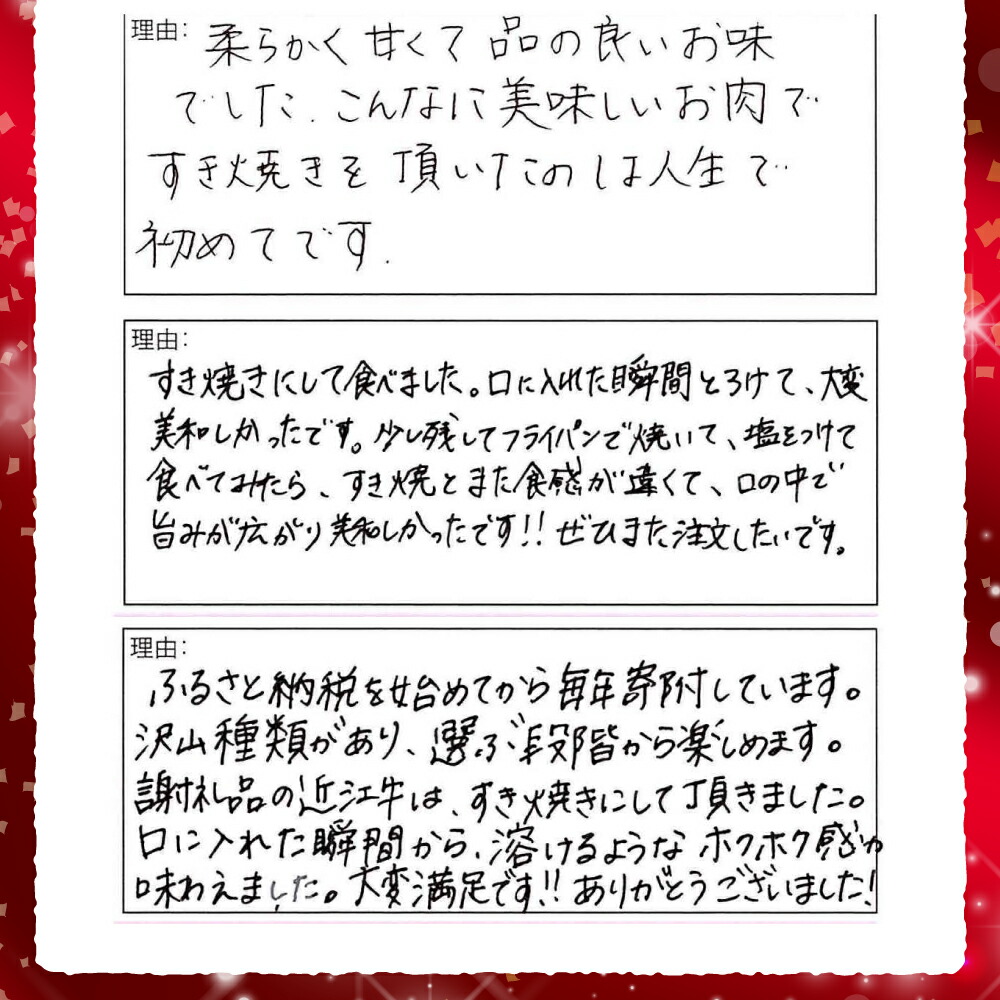 理由:
柔らかく甘くて品の良いお味
でした.こんなに美味しいお肉で
すき焼きを頂いたのは人生で
初めてです.
理由:
すき焼きにして食べました。口に入れた瞬間とろけて、大変
美味しかったです。少し残してフライパンで焼いて、塩をつけて
食べてみたら、すき焼とまた食感が違くて、口の中で
旨みが広がり美味しかったです!!ぜひまた注文したいです。
理由:
ふるさと納税を始めてから毎年寄附しています。
沢山種類があり、選ぶ段階から楽しめます。
謝礼品の近江牛は、すき焼きにして頂きました。
口に入れた瞬間から、溶けるようなホクホク感が
味わえました。大変満足です!!ありがとうございました!